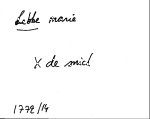 Lebbe marie
X de mich
1772/14